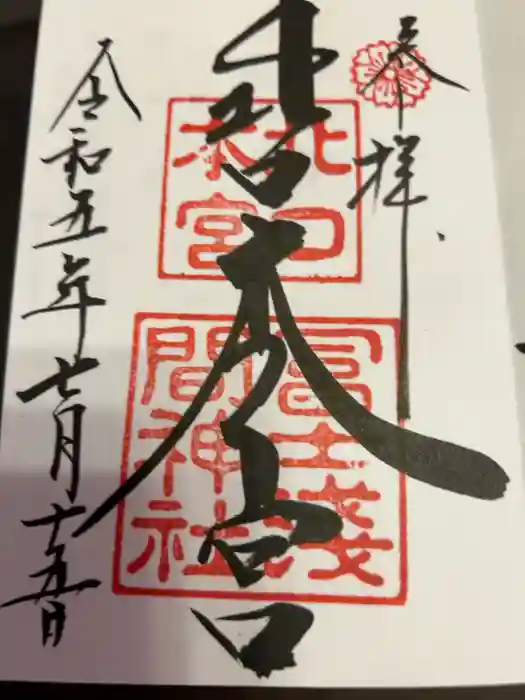 奉拝
北口
本宮
冨士淺
間神社
宮
令和五年七月十五日